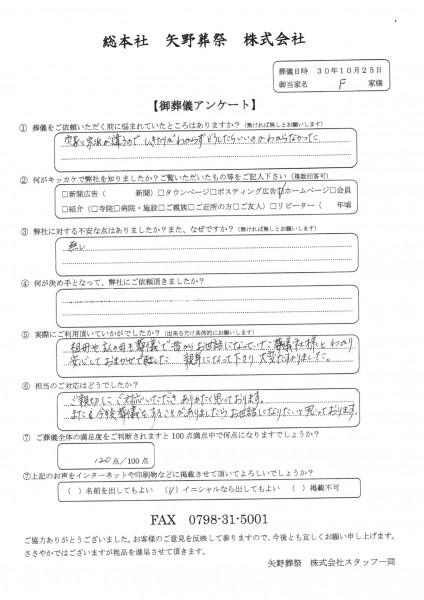 総本社 矢野葬祭 株式会社
葬儀日時 30年10月25日
御当家名 F 家様
【御葬儀アンケート】
① 葬儀をご依頼いただく前に悩まれていたところはありますか？（無ければ無しとお願いします）
実家と宗派が違うので、しきたりがわからずどうしたらいいのかわからなかった
② 何がキッカケで弊社を知りましたか？ご覧いただいたもの等をご記入下さい（複数回答可）
□新聞広告（ 新聞）□タウンページ□ポスティング広告☑ホームページ□会員
□紹介（□寺院□病院・施設□ご親族□ご近所の方□ご友人）□リピーター（ 年頃
③ 弊社に対する不安な点はありましたか？また、なぜですか？（無ければ無しとお願いします）
無し
④ 何が決め手となって、弊社にご依頼頂きましたか？
⑤ 実際にご利用頂いていかがでしたか？（出来るだけ具体的にお願いします）
祖母や私の母も葬儀で昔からお世話になっていた葬儀社様とわかり
安心しておまかせ出来ました。親身になって下さり大変たすかりました。
⑥ 担当のご対応はどうでしたか？
ご親切にご対応いただきありがたく思っております。
また今後葬儀をすることがありましたらお世話になりたいと思っております。
⑦ ご葬儀全体の満足度をご判断されますと100点満点中で何点になりますでしょうか？
120点/100点
⑦上記のお声をインターネットや印刷物などに掲載させて頂いてよろしいでしょうか？
（ ）名前を出してもよい （✓）イニシャルなら出してもよい （ ）掲載不可
FAX 0798-31-5001
ご協力ありがとうございました。お客様のご意見を反映して参りますので、今後とも宜しくお願い申し上げます。
ささやかではございますが粗品を進呈させて頂きます。
矢野葬祭 株式会社スタッフ一同